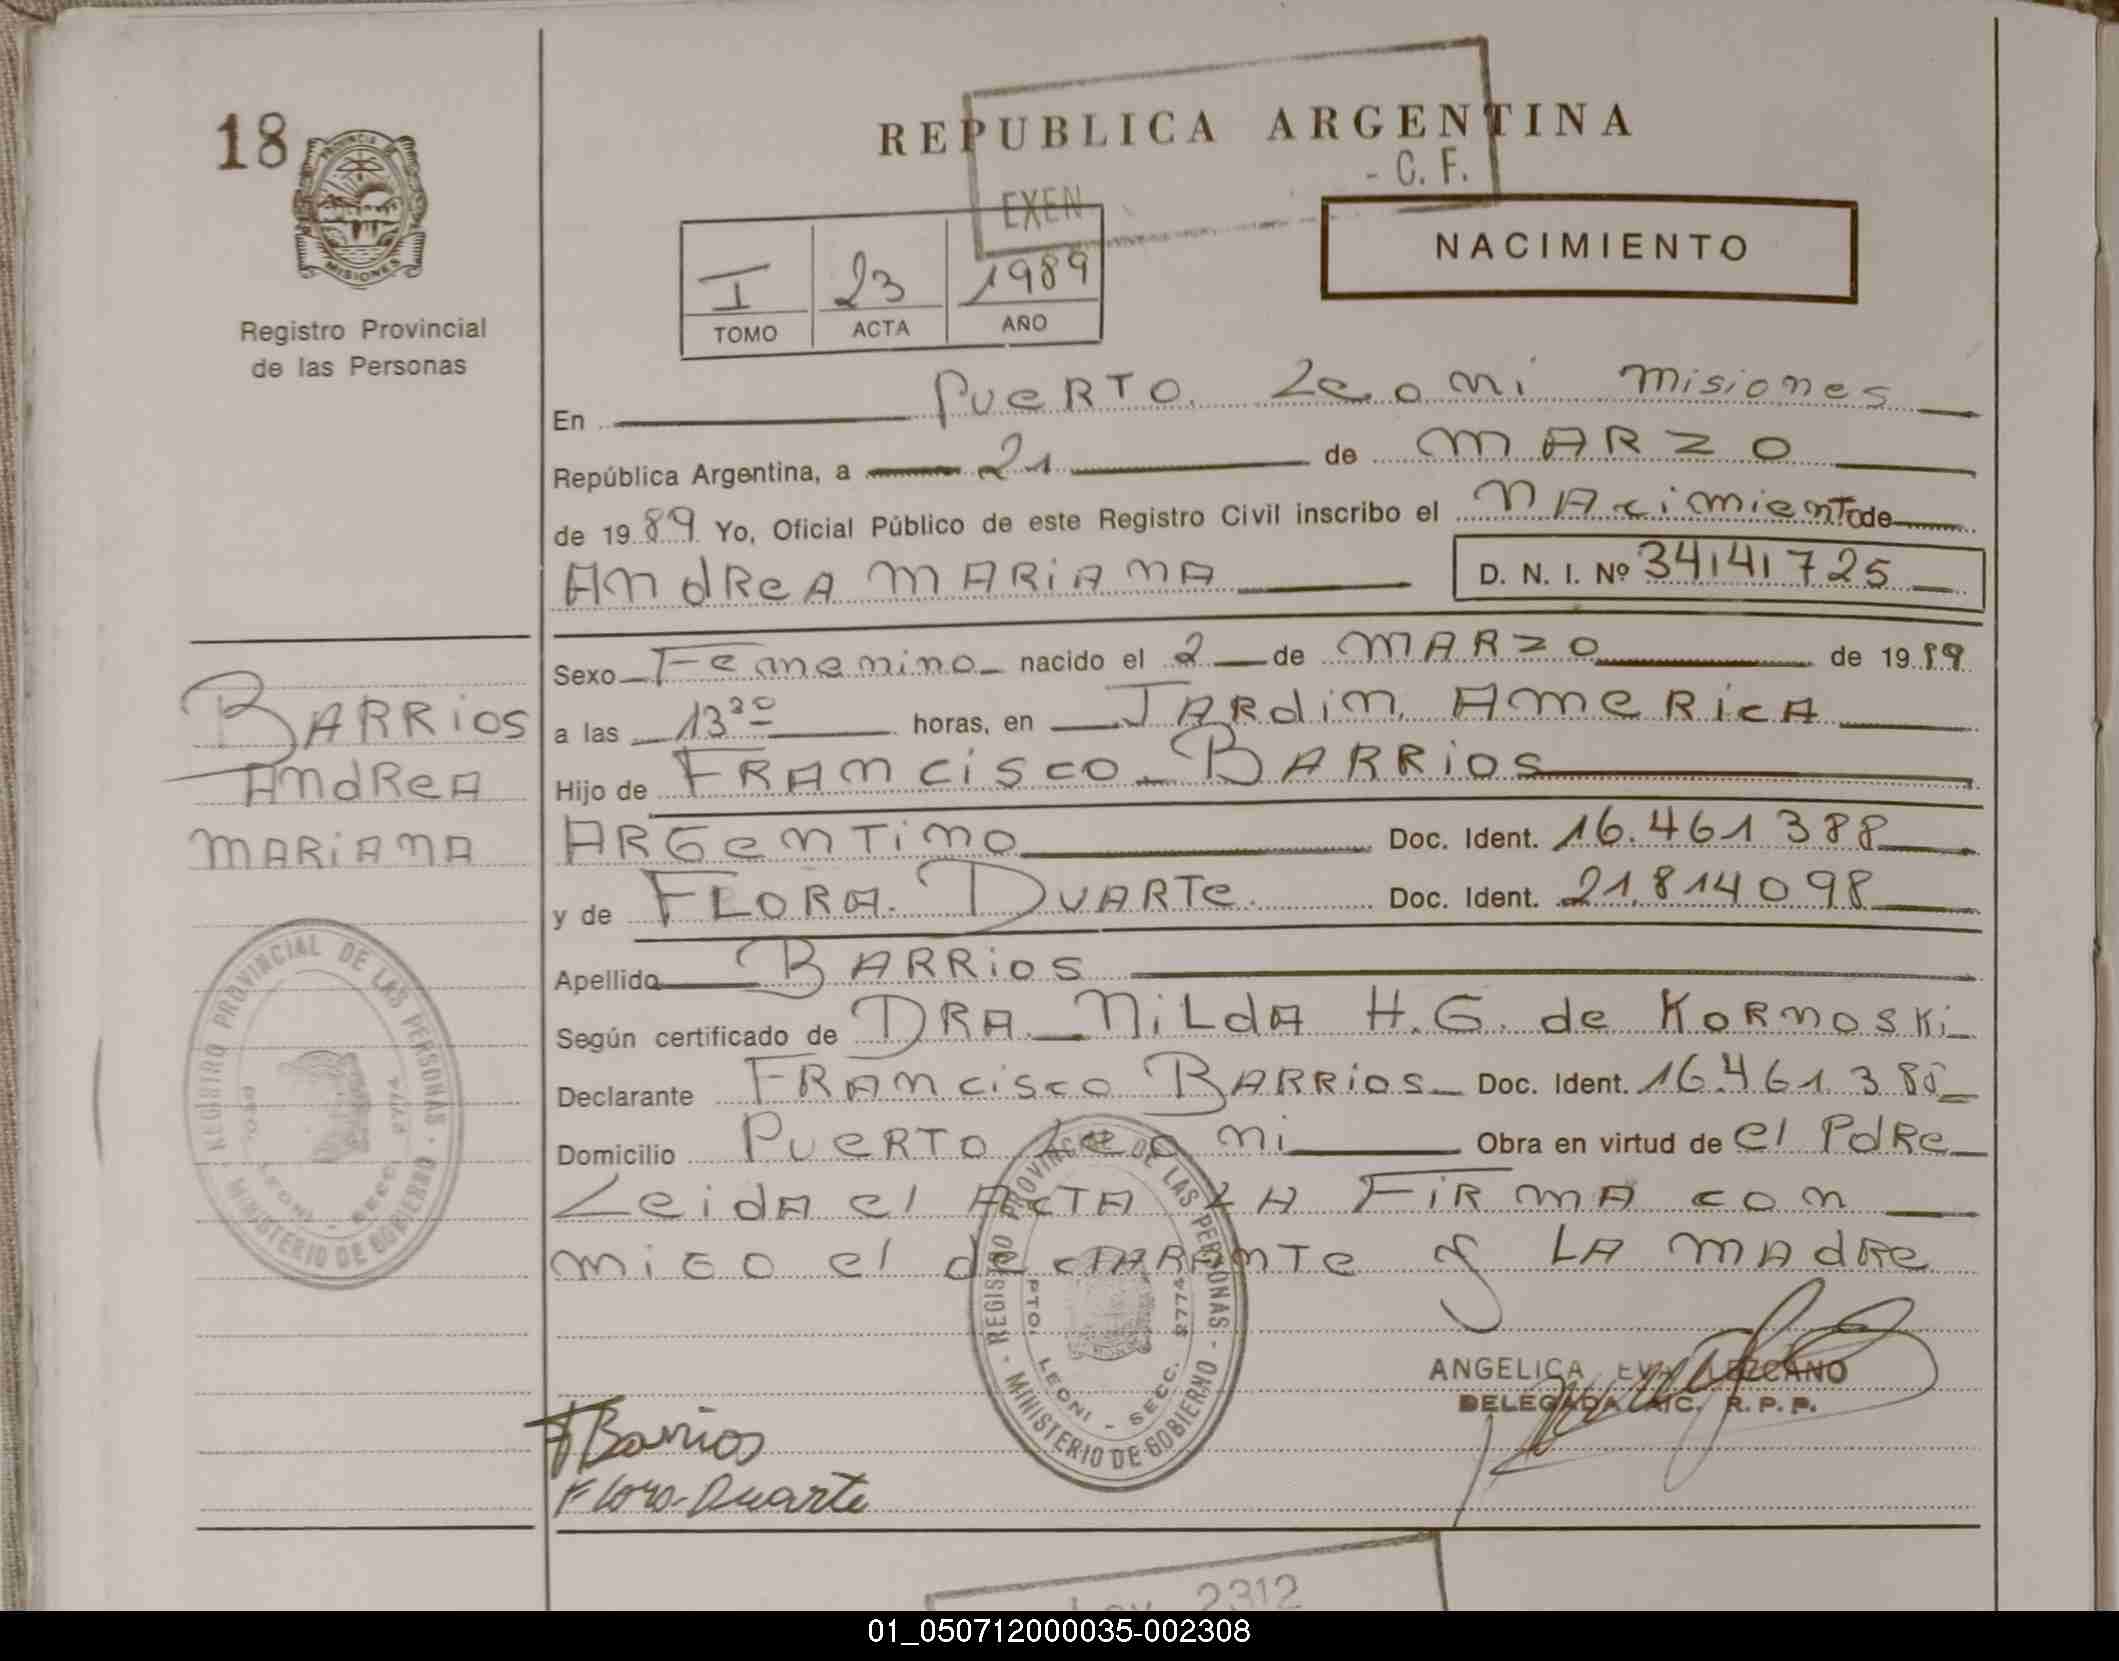 18
PROVINCIA DE
MISIONES
Registro Provincial
de las Personas
REPUBLICA ARGENTINA
EXEN - C. F.
NACIMIENTO
I 23 1989
TOMO ACTA AÑO
En PUERTO Leoni Misiones
República Argentina, a 21 de MARZO
de 1989 Yo, Oficial Público de este Registro Civil inscribo el NAcimiento de
ANdReA MARiANA D. N. I. Nº 34141725
Sexo Femenino nacido el 2 de MARZO de 1989
a las 13 horas, en JARdin AmeRicA
Hijo de FRANcisco BARRios
ARGenTino Doc. Ident. 16.461388
y de FLORA DUARTe Doc. Ident. 21.814098
Apellido BARRios
Según certificado de DRA. NiLdA H.G. de KORNOSKi
Declarante FRANcisco BARRios Doc. Ident. 16.461.388
Domicilio PUeRTO Leoni Obra en virtud de el PdRe
LeidA el ActA LA FiRmA con
miGo el decLARANTe y LA mAdRe
BARRiOS
ANdReA
MARiANA
REGISTRO PROVINCIAL DE LAS PERSONAS
MINISTERIO DE GOBIERNO
LEONI - SECC. 2774
REGISTRO PROVINCIAL DE LAS PERSONAS
MINISTERIO DE GOBIERNO
PTO. LEONI - SECC. 2774
ANGELICA EVA LEZCANO
DELEGADA A/C. R. P. P.
F Barrios
Flora Duarte
Ley 2312
01_050712000035-002308